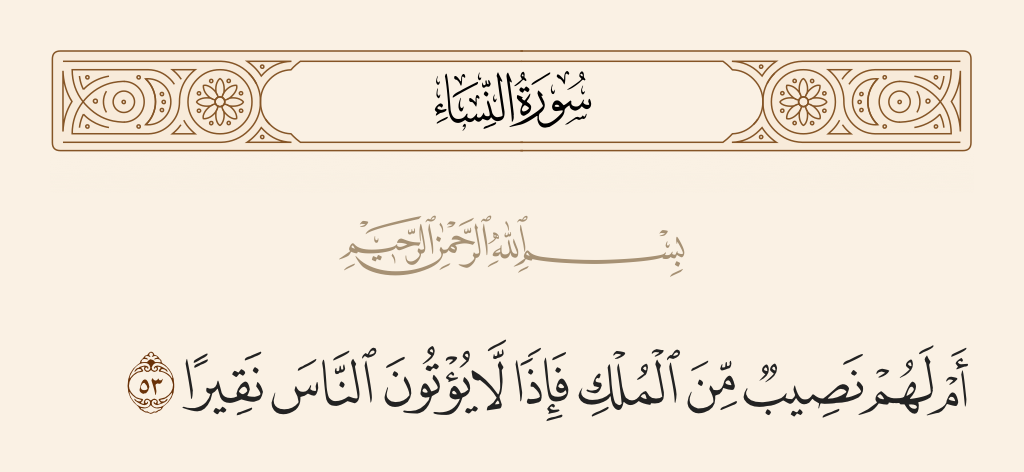 سُورَةُ النِّسَاءِ
بِسْمِ ٱللَّهِ ٱلرَّحْمَٰنِ ٱلرَّحِيمِ
أَمْ لَهُمْ نَصِيبٌ مِّنَ ٱلْمُلْكِ فَإِذًا لَّا يُؤْتُونَ ٱلنَّاسَ نَقِيرًا ٥٣